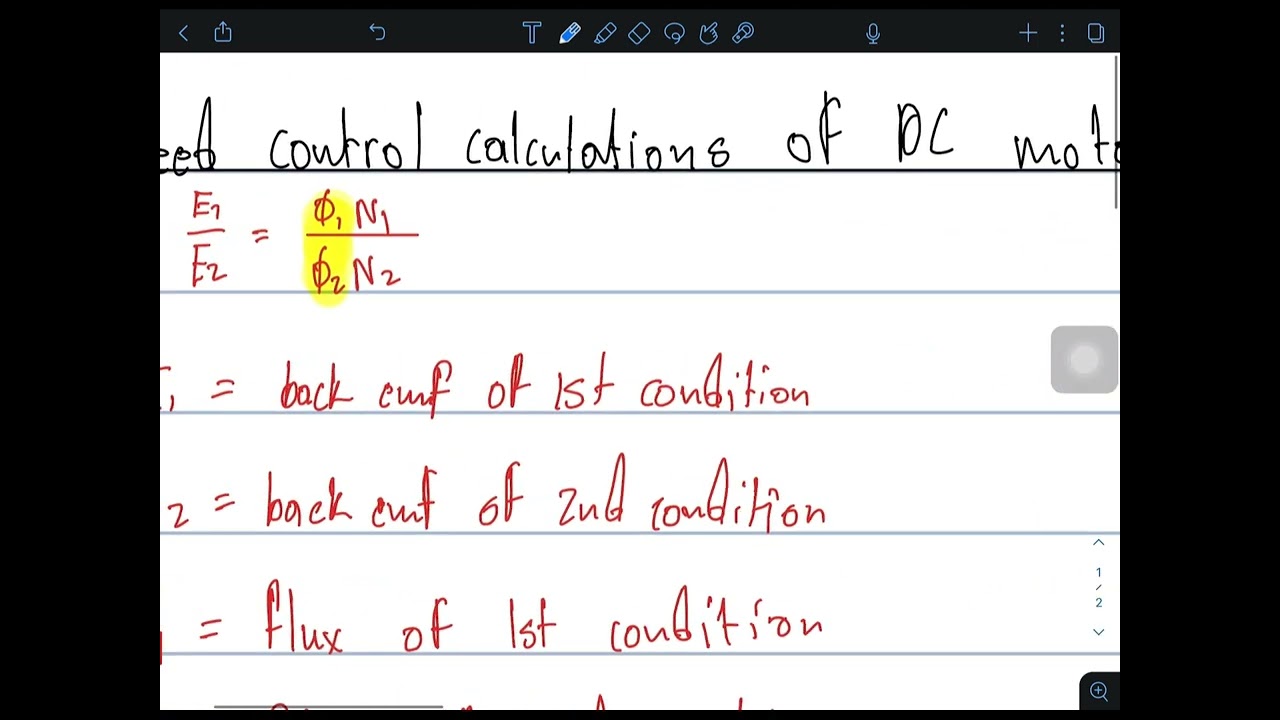 eed control calculations of DC moto
E1/E2 = Φ1 N1/Φ2 N2
1 = back emf of 1st condition
2 = back emf of 2nd condition
= flux of 1st condition
1
/
2